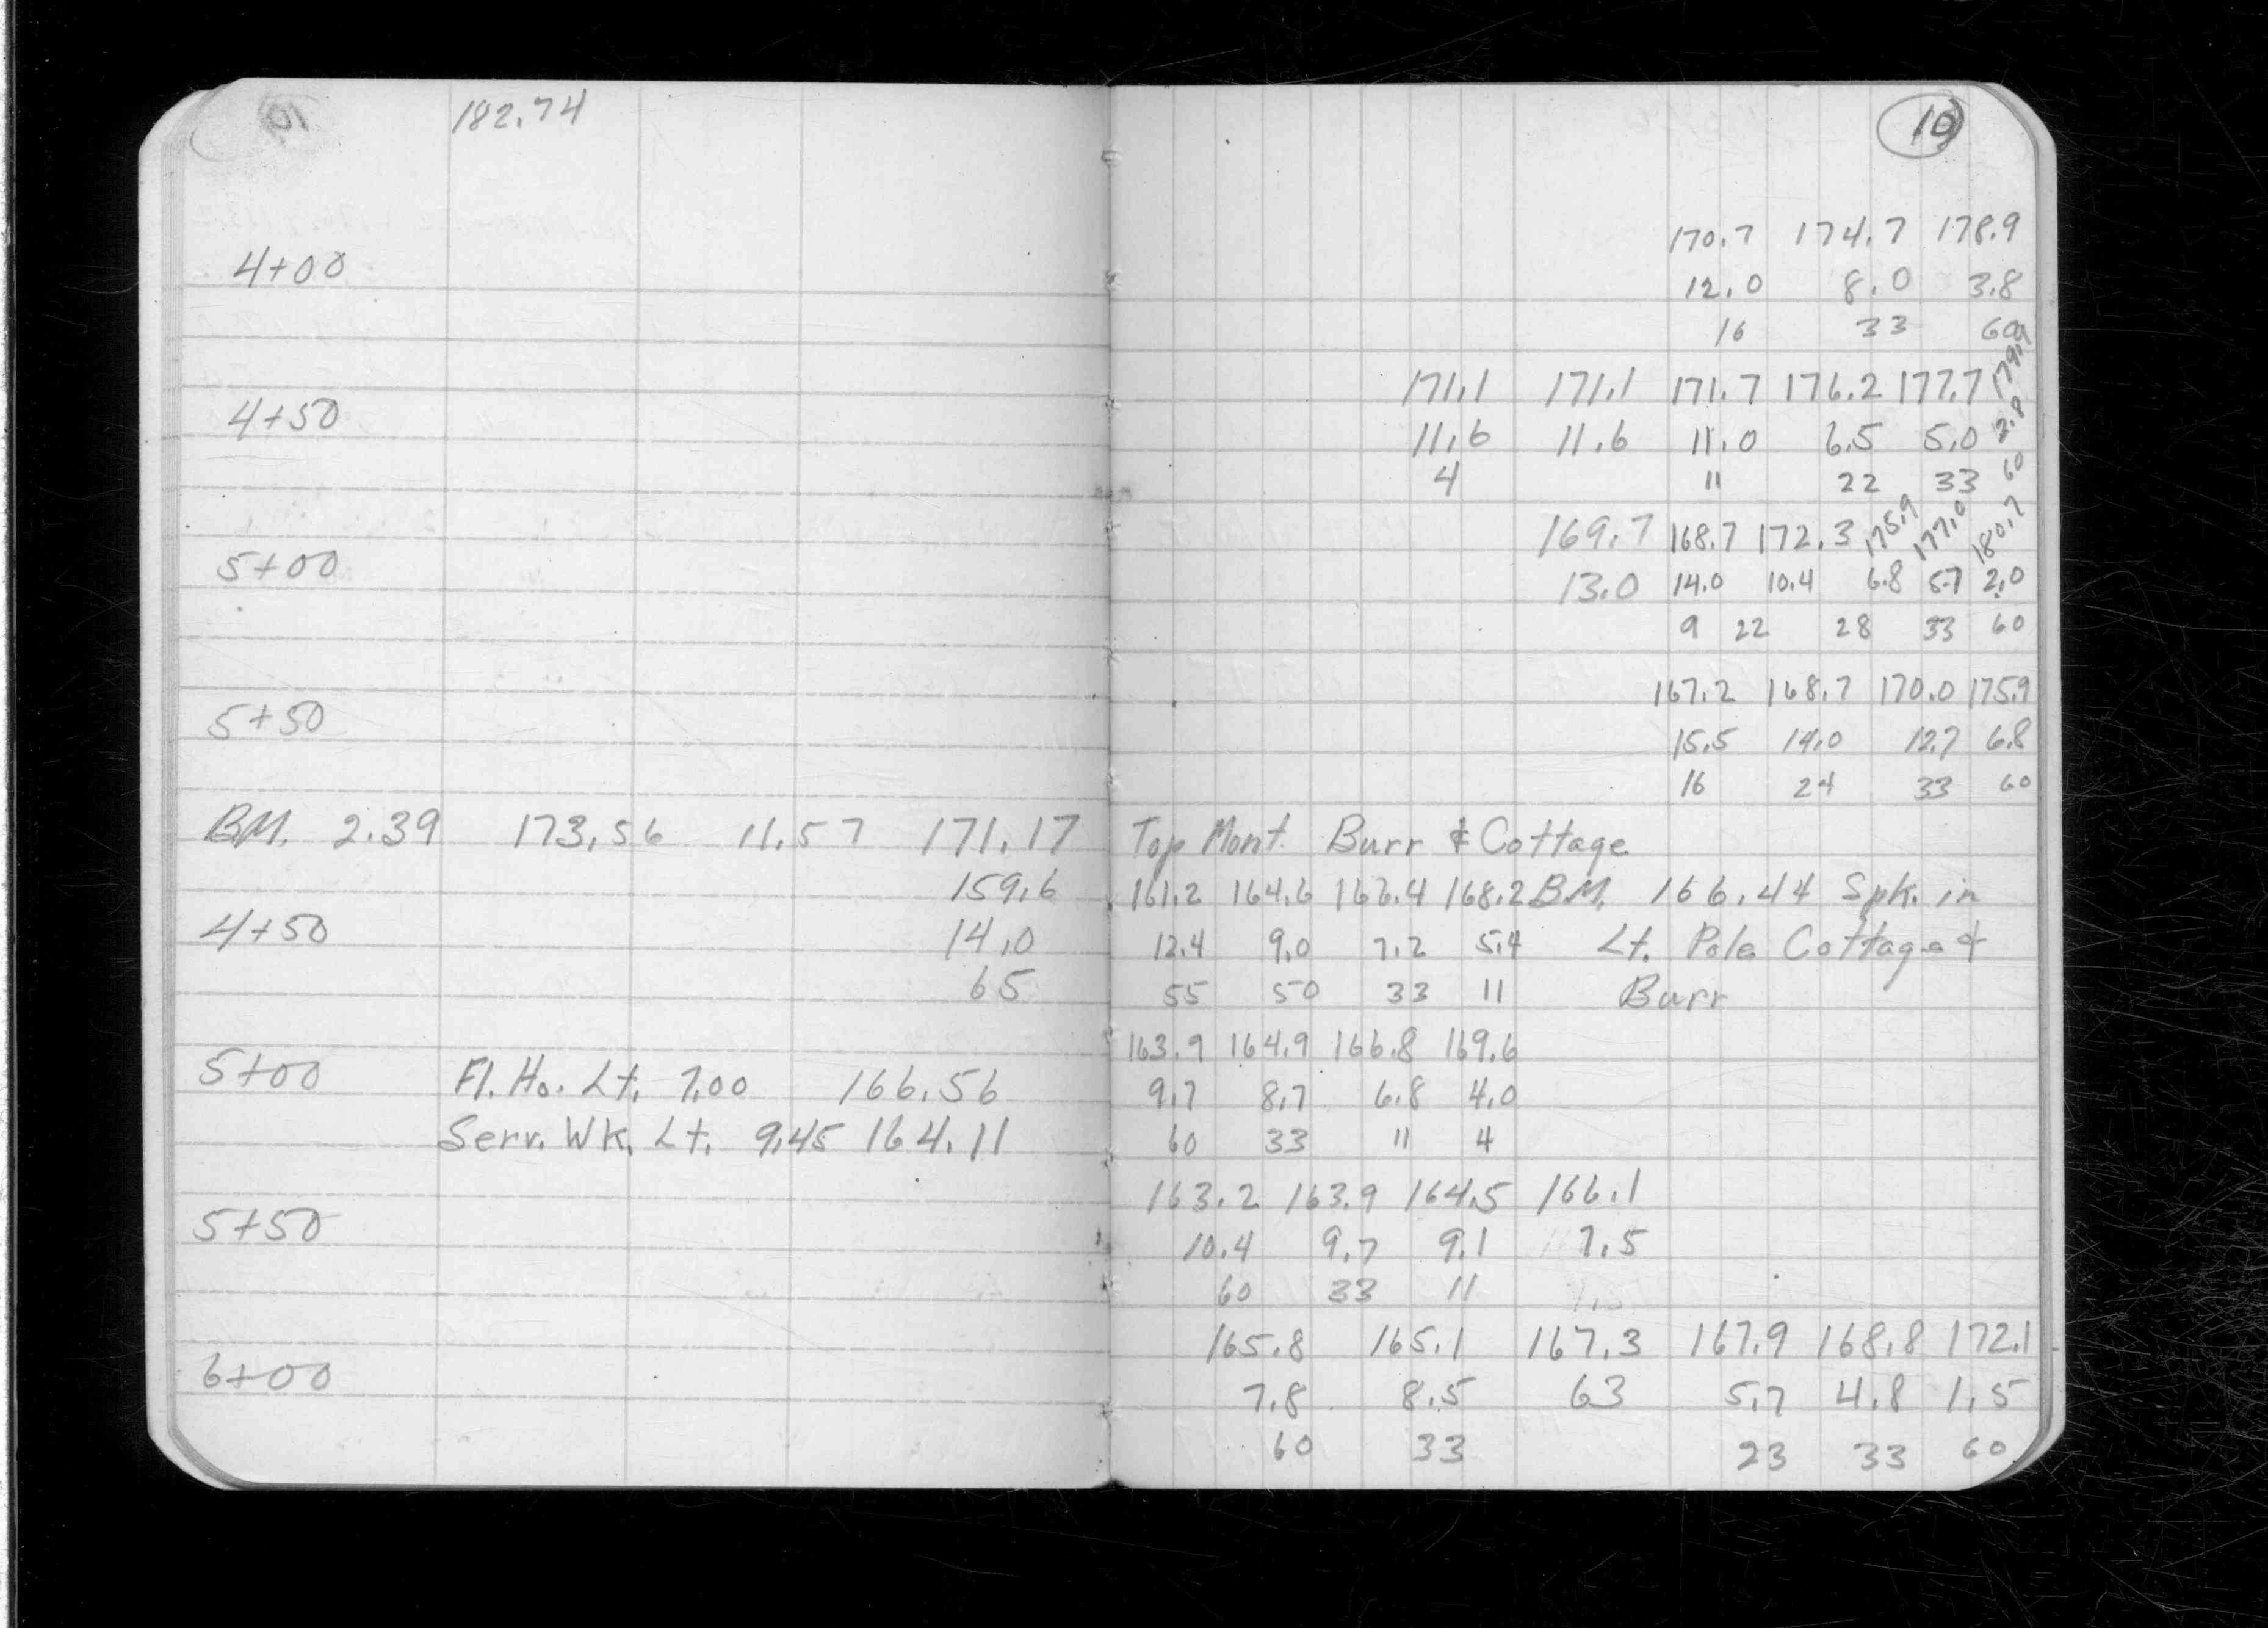 182.74
10
170.7 174.7 178.9
4+00
12.0 8.0 3.8
16 33 60
171.1 171.1 171.7 176.2 177.7 179.9
4+50
11.6 11.6 11.0 6.5 5.0 2.8
4 11 22 33 60
169.7 168.7 172.3 175.9 177.0 180.7
5+00
13.0 14.0 10.4 6.8 5.7 2.0
9 22 28 33 60
167.2 168.7 170.0 175.9
5+50
15.5 14.0 12.7 6.8
16 24 33 60
BM. 2.39 173.56 11.57 171.17 Top Mont. Burr & Cottage
159.6 161.2 164.6 166.4 168.2 BM. 166.44 Spk. in
4+50 14.0 12.4 9.0 7.2 5.4 Lt. Pole Cottage &
65 55 50 33 11 Burr
163.9 164.9 166.8 169.6
5+00 Fl. Ho. Lt. 7.00 166.56 9.7 8.7 6.8 4.0
Serv. Wk. Lt. 9.45 164.11 60 33 11 4
163.2 163.9 164.5 166.1
5+50 10.4 9.7 9.1 7.5
60 33 11
165.8 165.1 167.3 167.9 168.8 172.1
6+00 7.8 8.5 63 5.7 4.8 1.5
60 33 23 33 60